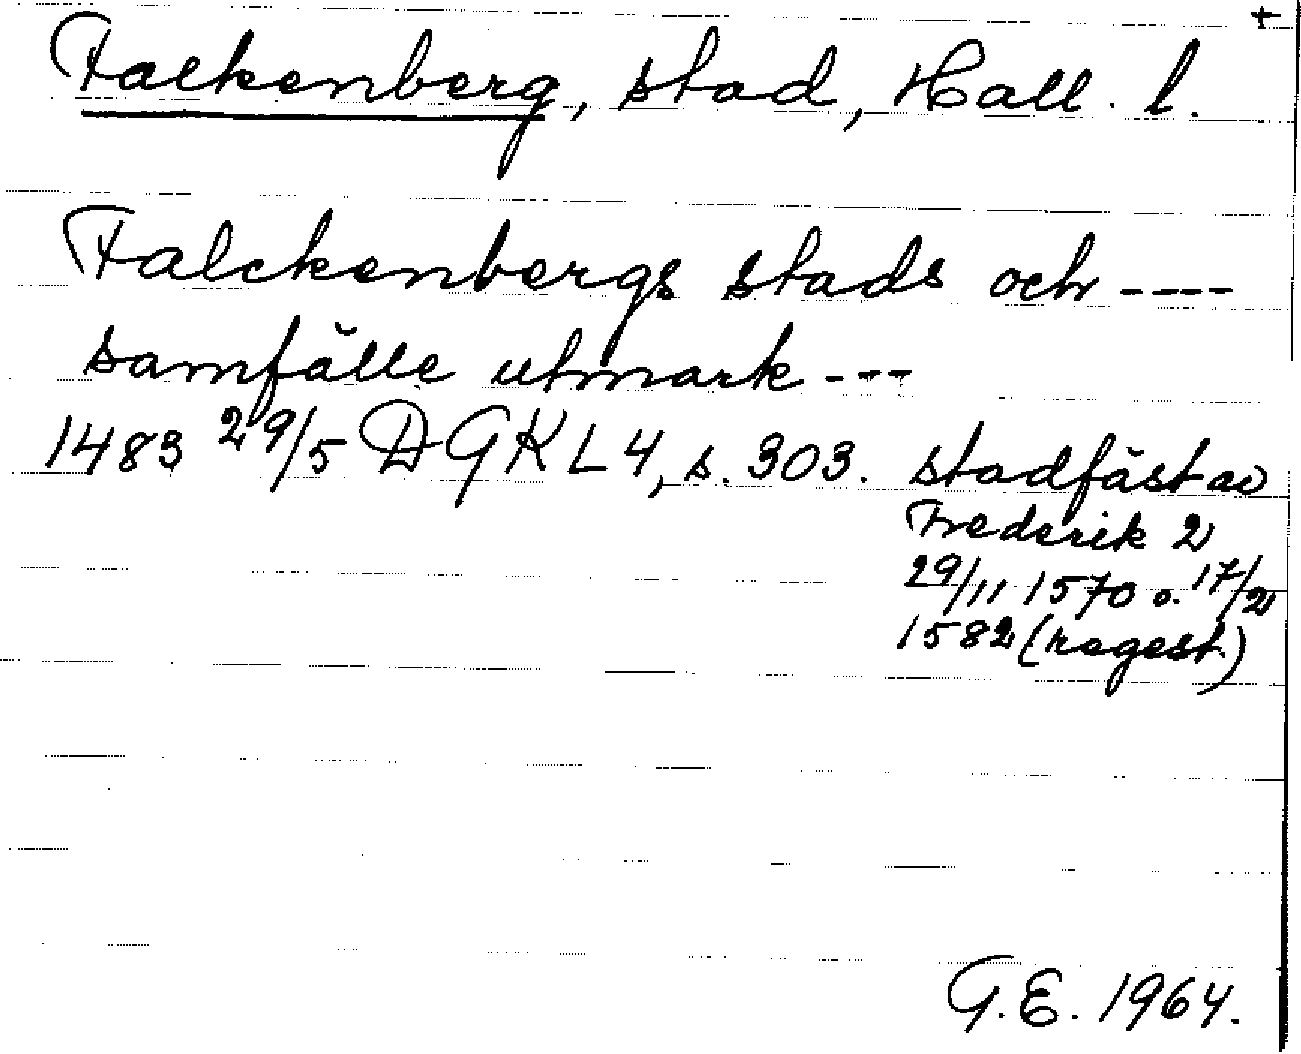 +
Falkenberg, stad, Hall. l.
Falckenbergs stads och ----
samfälle utmark ---
1483 29/5 DGKL4, s. 303. stadfäst av
Frederik 2
29/11 1570 o. 17/2
1582 (regest.)
G.E. 1964.